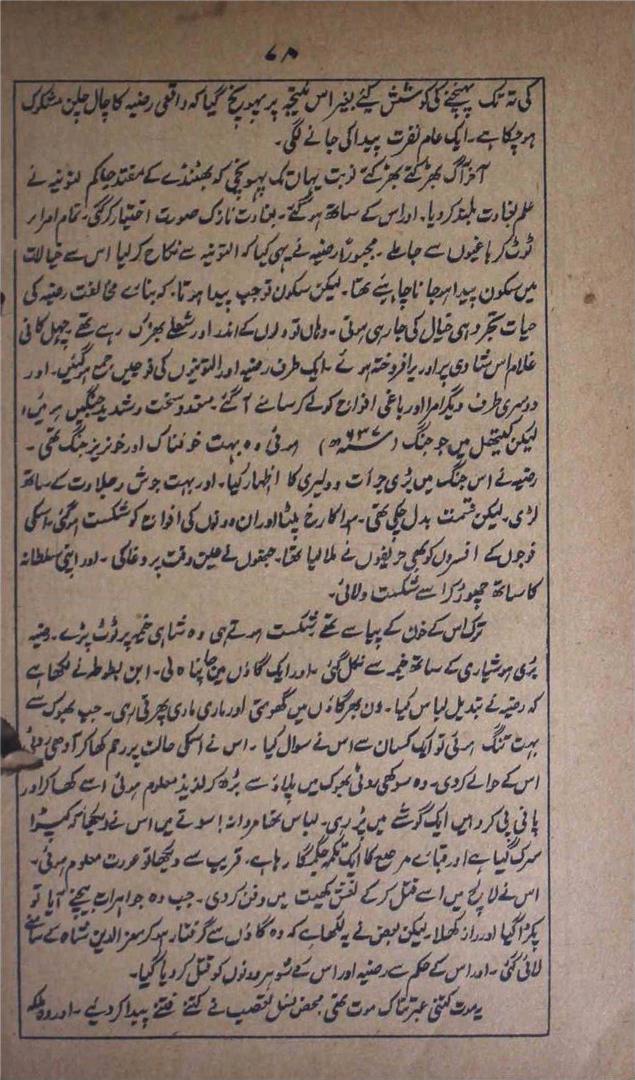 ۷۸
کی تہ تک پہنچنے کی کوشش کیئے بغیر اس نتیجہ پر پہونچ گیا کہ واقعی رضیہ کا چال چلن مشکوک
ہو چکا ہے۔ ایک عام نفرت پیدا کی جانے لگی۔
آخر آگ بھڑکتے بھڑکتے نوبت یہاں تک پہونچی کہ بھٹنڈے کے مقتدر حاکم التونیہ نے
علم بغاوت بلند کر دیا۔ اور اس کے ساتھ ہو گئے۔ بغاوت نازک صورت اختیار کر گئی۔ تمام امراء
ٹوٹ کر باغیوں سے جا ملے۔ مجبوراً رضیہ نے یہی کیا کہ التونیہ سے نکاح کر لیا اس سے خیالات
میں سکون پیدا ہو جانا چاہئے تھا۔ لیکن سکون تو جب پیدا ہوتا، کہ بنائے مخالفت رضیہ کی
حیات تجرد ہی خیال کی جا رہی ہوتی۔ وہاں تو دلوں کے اندر اور شعلے بھڑک رہے تھے چہل گانی
غلام اس شادی پر اور برافروختہ ہوئے۔ ایک طرف رضیہ اور التونیہ کی فوجیں جمع ہو گئیں۔ اور
دوسری طرف دیگر امرا اور باغی افواج کو لے کر سامنے آ گئے۔ متعدد سخت و شدید جنگیں ہوئیں،
لیکن کیتھل میں جو جنگ (۶۳۷ھ) ہوئی وہ بہت خوفناک اور خونریز جنگ تھی۔
رضیہ نے اس جنگ میں بڑی جرأت و دلیری کا اظہار کیا۔ اور بہت جوش و جلاوت کے ساتھ
لڑی۔ لیکن قسمت بدل چکی تھی۔ ہوا کا رخ پلٹا اور ان دونوں کی افواج کو شکست ہو گئی۔ اسکی
فوجوں کے افسروں کو بھی حریفوں نے ملا لیا تھا۔ جنھوں نے عین وقت پر دغا کی۔ اور اپنی سلطانہ
کا ساتھ چھوڑ کر اسے شکست دلائی۔
ترک اس کے خون کے پیاسے تھے شکست ہوتے ہی وہ شاہی خیمہ پر ٹوٹ پڑے۔ رضیہ
بڑی ہوشیاری کے ساتھ خیمہ سے نکل گئی۔ اور ایک گاؤں میں جا پناہ لی۔ ابن بطوطہ نے لکھا ہے
کہ رضیہ نے تبدیل لباس کیا۔ دن بھر گاؤں میں گھومتی اور ماری ماری پھرتی رہی۔ جب بھوک سے
بہت تنگ ہوئی تو ایک کسان سے اس نے سوال کیا۔ اس نے اسکی حالت پر رحم کھا کر آدھی روٹی
اس کے حوالے کر دی۔ وہ سوکھی روٹی بھوک میں پلاؤ سے بڑھ کر لذیذ معلوم ہوئی اسے کھا کر اور
پانی پی کر وہیں ایک گوشے میں پڑ رہی۔ لباس تھا مردانہ! سوتے میں اس نے دیکھا کہ کپڑا
سرک گیا ہے اور قبائے مرصع کا ایک تکمہ جگمگا رہا ہے۔ قریب سے دیکھا تو عورت معلوم ہوئی۔
اس نے لالچ میں اسے قتل کر کے نعش کھیت میں دفن کر دی۔ جب وہ جواہرات بیچنے آیا تو
پکڑا گیا اور راز کھلا۔ لیکن بعض نے یہ لکھا ہے کہ وہ گاؤں سے گرفتار ہو کر معز الدین شاہ کے سامنے
لائی گئی۔ اور اس کے حکم سے رضیہ اور اس کے شوہر دونوں کو قتل کر دیا گیا۔
یہ موت کتنی عبرتناک موت تھی محض نسلی تعصب نے کتنے فتنے پیدا کر دیئے۔ اور وہ ملکہ